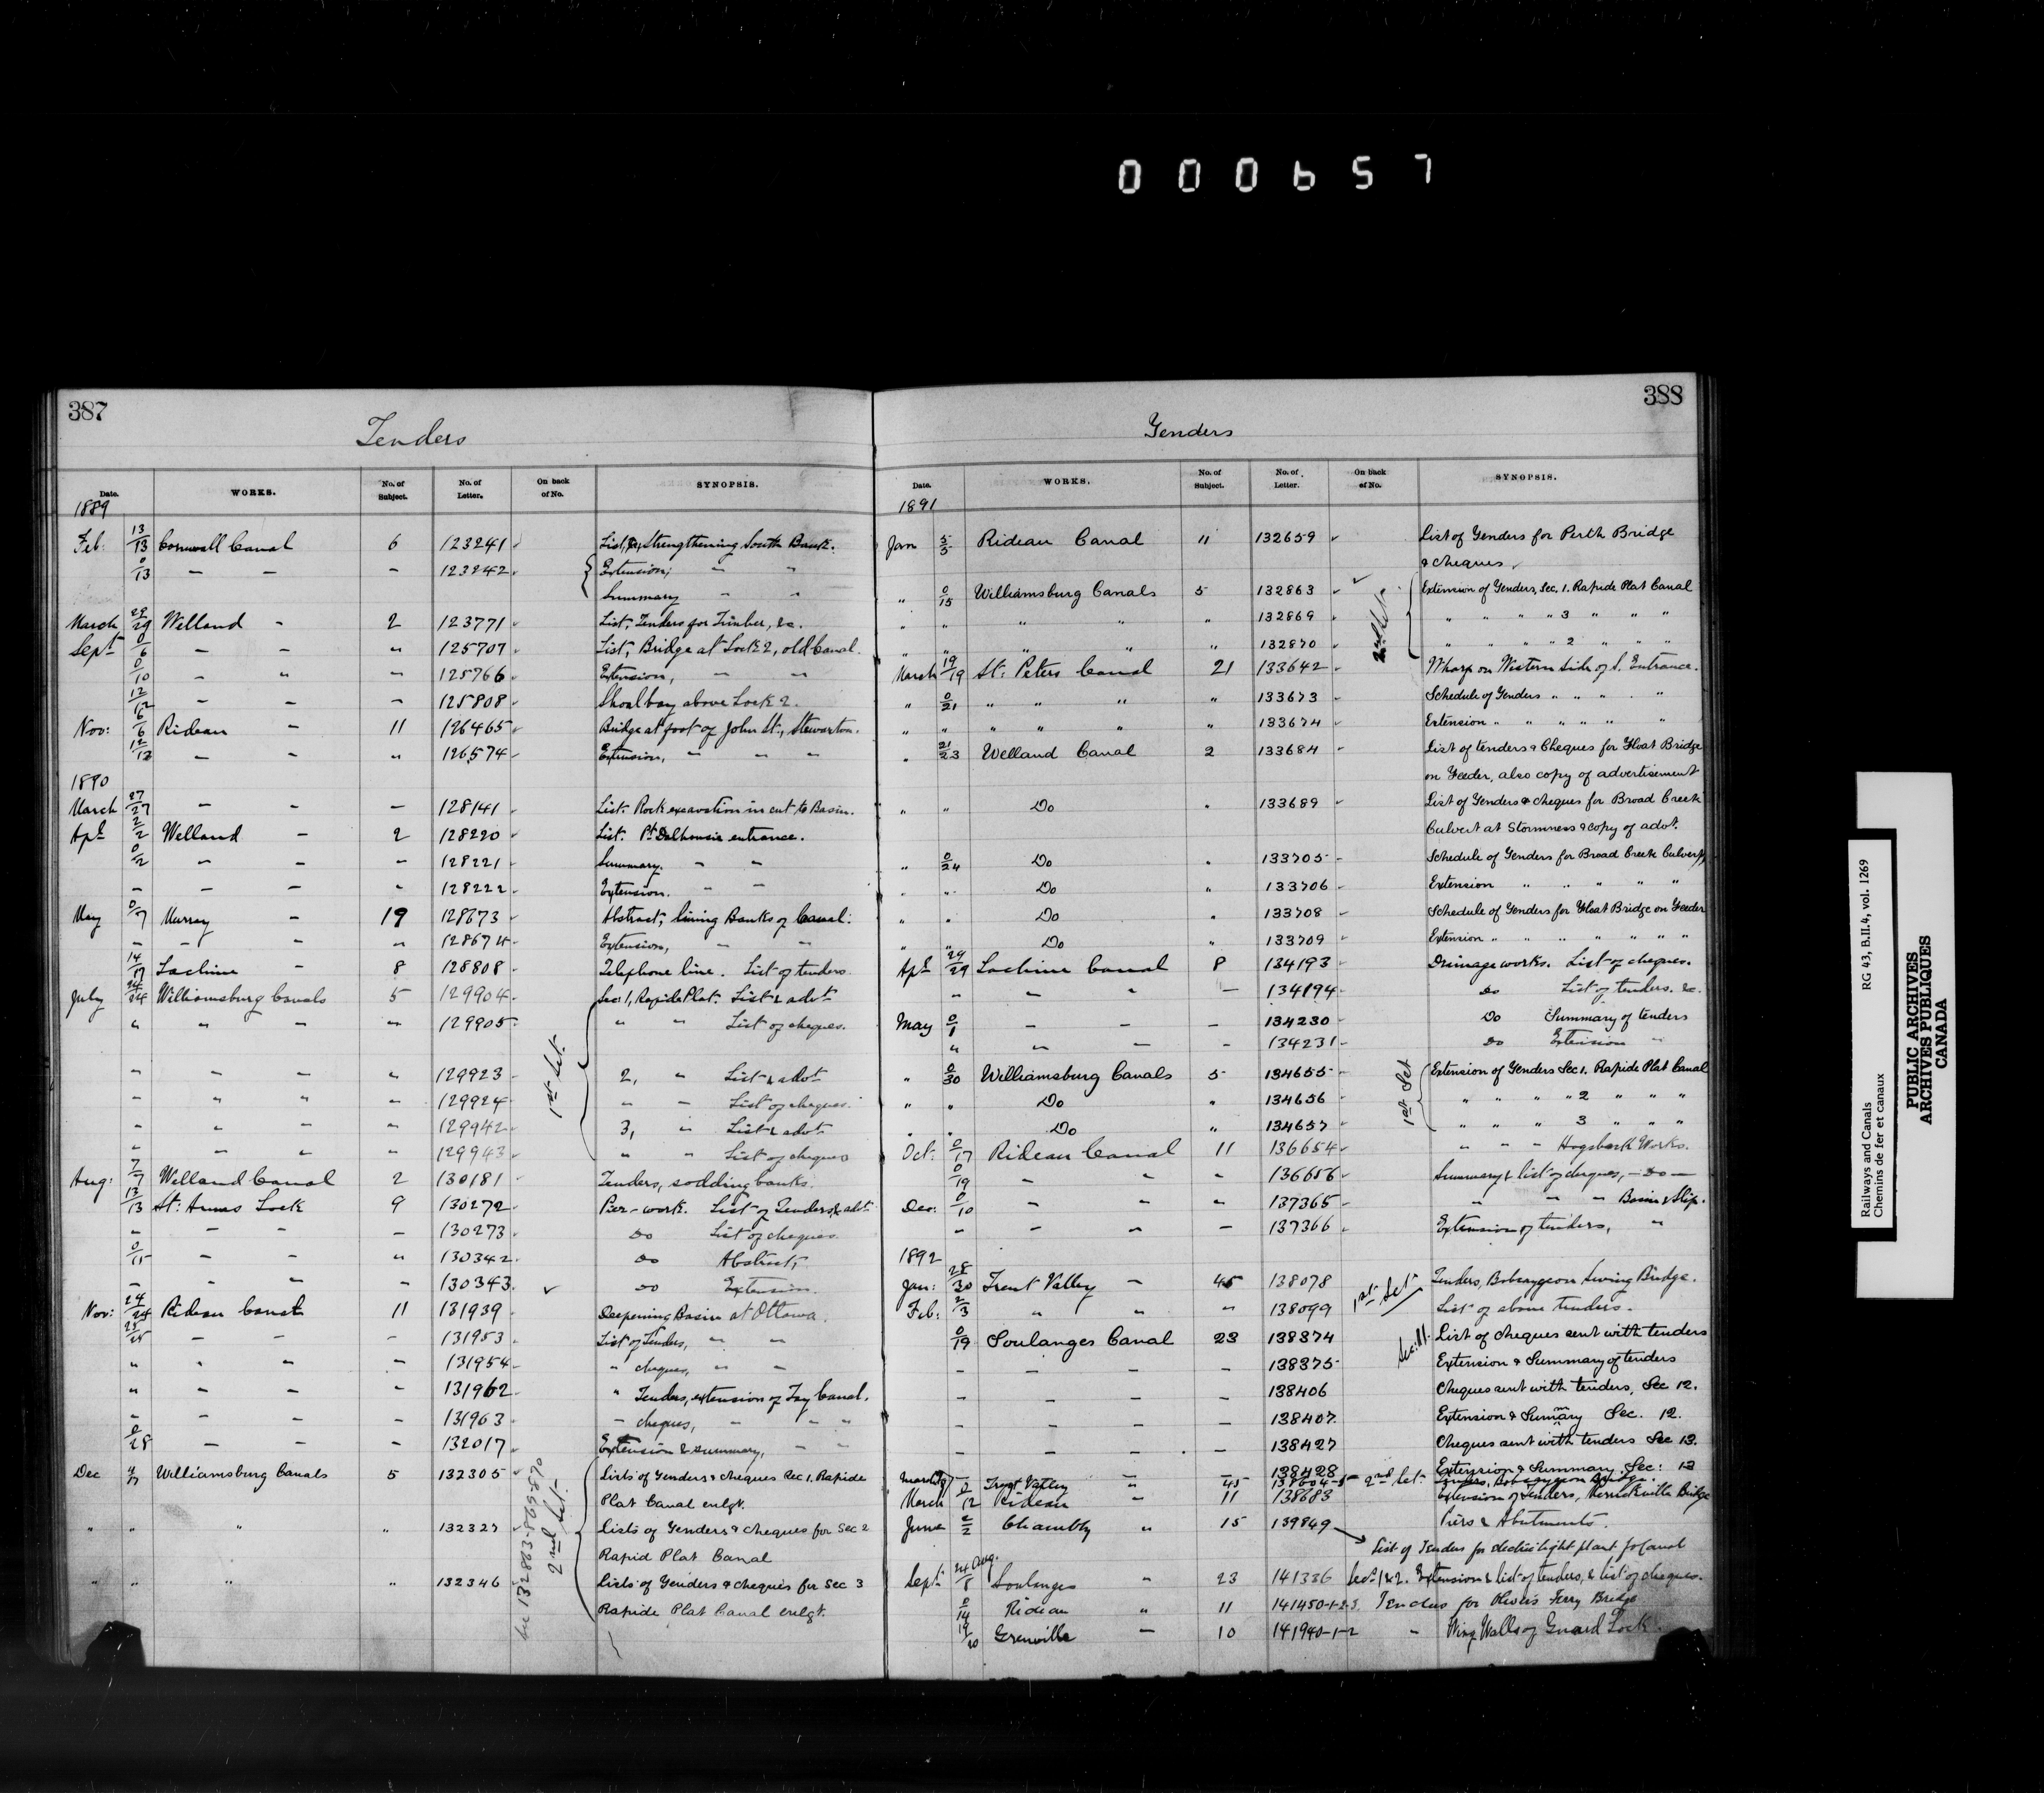 000657
387
Tenders
Date. WORKS. No. of Subject. No. of Letter. On back of No. SYNOPSIS.
1889
Feb: 13/13 Cornwall Canal 6 123241 List, Strengthening South Bank.
0/13 — — — 123242 Extension, " "
Summary — "
March 29/29 Welland - 2 123771 List, Tenders for Timber, &c.
Sept 0/6 — — " 125707 List, Bridge at Lock 2, old Canal.
0/10 — " — 125766 Extension, — —
12/12 — — — 125808 Shoal bay above Lock 2.
Nov: 6/6 Rideau — 11 126465 Bridge at foot of John St., Stewarton.
12/12 — — " 126574 Extension, " — "
1890
March 27/27 — — — 128141 List. Rock excavation in cut to Basin.
Apl 2/2 Welland — 2 128220 List. Pt Dalhousie entrance.
0/2 — — — 128221 Summary. — —
— — — " 128222 Extension. — —
May 0/7 Murray — 19 128673 Abstract, lining Banks of Canal.
— — — " 128674 Extension, — "
14/17 Lachine — 8 128808 Telephone line. List of tenders
July 24/24 Williamsburg Canals 5 129904 Sec: 1, Rapide Plat. List & advt
" " — " 129905 " " List of cheques.
1st Let.
— — — " 129923 2, " List & advt
— " " — 129924 " — List of cheques.
— " — " 129942 3, " List & advt
" — " — 129943 " " List of cheques
Aug: 7/7 Welland Canal 2 130181 Tenders, sodding banks.
13/13 St: Annes Lock 9 130272 Pier-work. List of Tenders, & advt
— — — — 130273 Do List of cheques.
0/15 — — " 130342 Do Abstract,
— — " — 130343 Do Extension.
Nov: 24/24 Rideau Canal 11 131939 Deepening Basin at Ottawa.
25/25 — — — 131953 List of Tenders, " "
" " — — 131954 " cheques, " —
" — — — 131962 " Tenders, extension of Tay Canal.
— — — — 131963 — cheques, — " "
0/28 — — — 132017 Extension & summary, — —
Dec Williamsburg Canals 5 132305 Lists of Tenders & cheques Sec 1. Rapide
Plat Canal enlgt.
" " " " 132327 Lists of Tenders & cheques for Sec 2
Rapid Plat Canal
" " " " 132346 Lists of Tenders & cheques for Sec 3
Rapide Plat Canal enlgt.
2nd Let.
132863.869.870
388
Tenders
Date. WORKS. No. of Subject. No. of Letter. On back of No. SYNOPSIS.
1891
Jan 5/5 Rideau Canal 11 132659 List of Tenders for Perth Bridge
& cheques
" 0/15 Williamsburg Canals 5 132863 Extension of Tenders, Sec. 1. Rapide Plat Canal
" " " " " 132869 " " " " 3 " " "
" " " " " 132870 " " " 2 " " "
2nd Let.
March 19/19 St: Peters Canal 21 133642 Wharf on Western Side of S. Entrance.
" 0/21 " " " " 133673 Schedule of Tenders " " " "
" " " " " " 133674 Extension " " " " " "
" 21/23 Welland Canal 2 133684 List of tenders & Cheques for Float Bridge
on Feeder, also copy of advertisement
" " Do " 133689 List of Tenders & cheques for Broad Creek
Culvert at Stormness & copy of advt.
" 0/24 Do " 133705 Schedule of Tenders for Broad Creek Culvert
" " Do " 133706 Extension " " " " "
" " Do " 133708 Schedule of Tenders for Float Bridge on Feeder
" " Do " 133709 Extension " " " " " " "
Apl 29/29 Lachine Canal 8 134193 Drainage works. List of cheques.
" — " — 134194 Do List of tenders. &c.
May 0/1 — — — 134230 Do Summary of tenders
" " — — 134231 Do Extension "
" 0/30 Williamsburg Canals 5 134655 Extension of Tenders Sec 1. Rapide Plat Canal
" " Do " 134656 " " " " 2 " " "
" " Do " 134657 " " " 3 " " "
1st Set
Oct: 0/17 Rideau Canal 11 136654 " " — Hogsback Works.
0/19 — " " 136656 Summary & list of cheques, — Do —
Dec: 0/10 — " " 137365 " " — Basin & Slip.
— — — " — 137366 Extension of tenders, "
1892
Jan: 28/30 Trent Valley — 45 138078 1st Set Tenders, Bobcaygeon Swing Bridge.
Feb: 2/3 " " " 138099 List of above tenders.
0/19 Soulanges Canal 23 138374 Sec: 11. List of cheques sent with tenders
— — — — 138375 Extension & Summary of tenders
— — — — 138406 Cheques sent with tenders, Sec 12.
— — — — 138407 Extension & Summary Sec. 12.
— — — — 138427 Cheques sent with tenders Sec 13.
— 138428 Extension & Summary Sec: 13
March Trent Valley " 45 2nd Let. Tenders, Bobcaygeon Bridge.
March 12 Rideau — 11 138683 Extension of Tenders, Merrickville Bridge
Piers & Abutments.
June 2/2 Chambly " 15 139849
List of Tenders for electric light plant for Canal
Sept 24 Aug./8 Soulanges " 23 141336 Secs 1 & 2. Extension & list of tenders, & list of cheques.
0/14 Rideau " 11 141450-1-2-3. Tenders for Olivers Ferry Bridge
19/20 Grenville — 10 141940-1-2 — Wing Walls of Guard Lock.
Railways and Canals RG 43, B.II.4, vol. 1269
Chemins de fer et canaux
PUBLIC ARCHIVES
ARCHIVES PUBLIQUES
CANADA